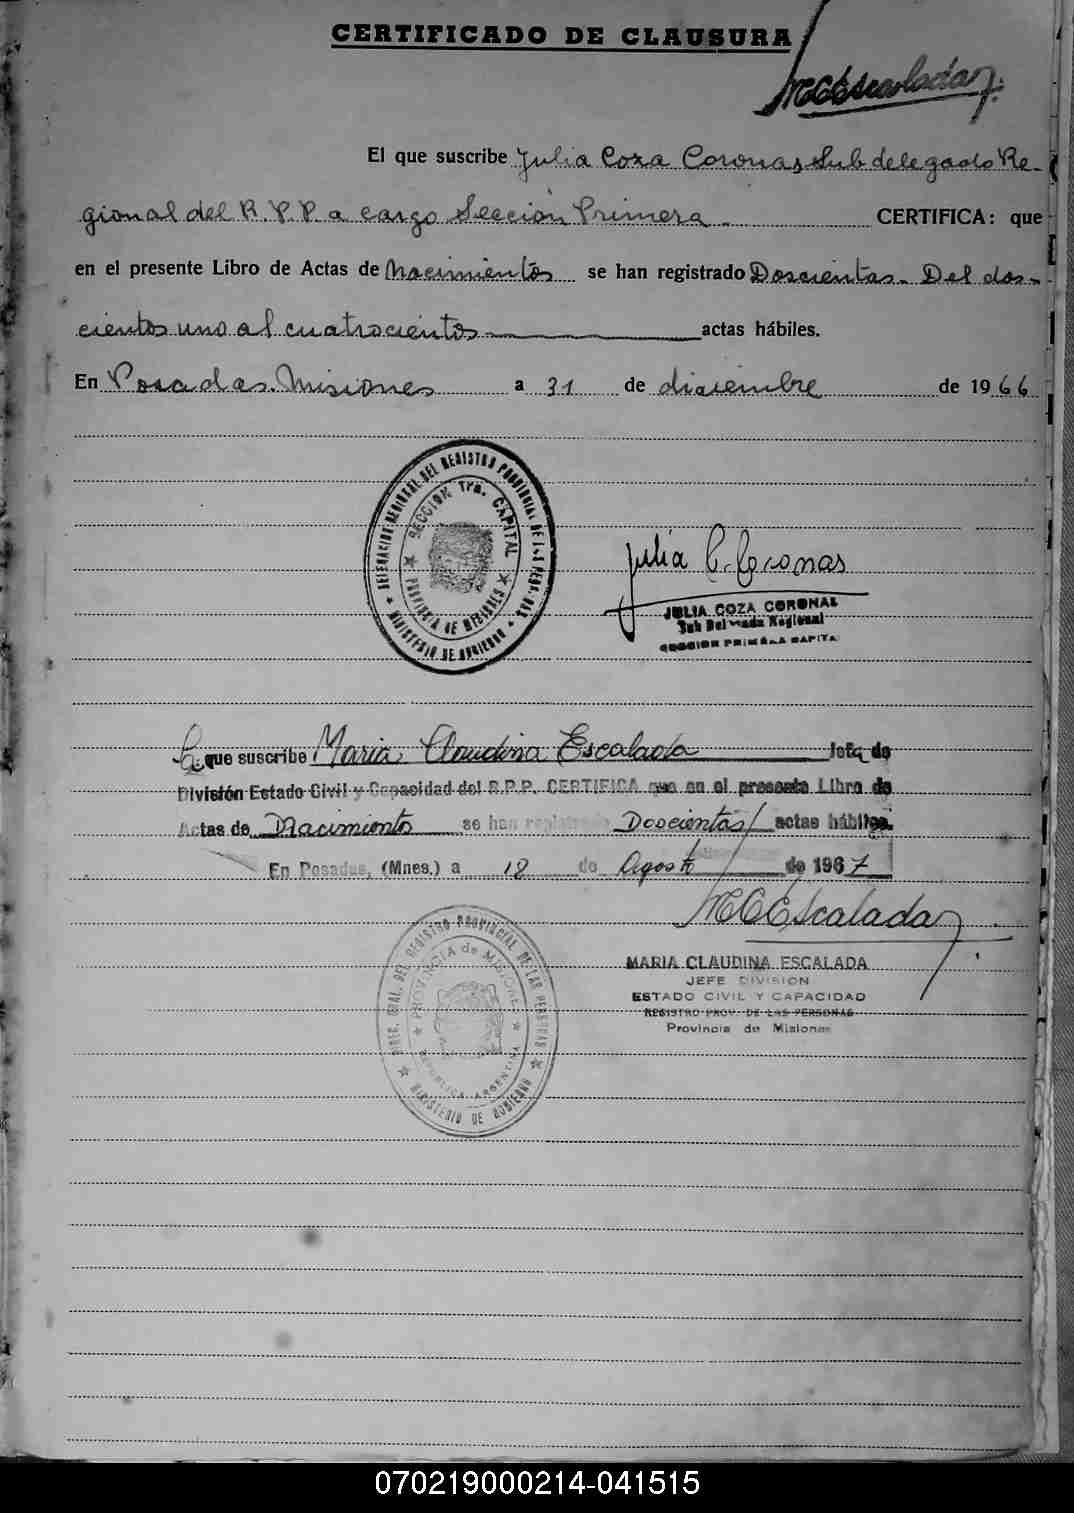 CERTIFICADO DE CLAUSURA
MCEscalada
El que suscribe Julia Coza Coronas, Sub delegado Re-
gional del R.P.P. a cargo Sección Primera CERTIFICA: que
en el presente Libro de Actas de Nacimientos se han registrado Doscientas - Del dos-
cientos uno al cuatrocientos actas hábiles.
En Posadas. Misiones a 31 de diciembre de 1966
DELEGACION REGIONAL DEL REGISTRO PROVINCIAL DE LAS PERSONAS
MINISTERIO DE GOBIERNO
SECCION 1ra. CAPITAL
PROVINCIA DE MISIONES
Julia C. Coronas
JULIA COZA CORONAS
Sub Delegada Regional
SECCION PRIMERA CAPITAL
La que suscribe Maria Claudina Escalada Jefa de
División Estado Civil y Capacidad del R.P.P. CERTIFICA que en el presente Libro de
Actas de Nacimiento se han registrado Doscientas/ actas hábiles.
En Posadas, (Mnes.) a 18 de Agosto de 1967
MCEscalada
MARIA CLAUDINA ESCALADA
JEFE DIVISION
ESTADO CIVIL Y CAPACIDAD
REGISTRO PROV. DE LAS PERSONAS
Provincia de Misiones
DIREC. GRAL. DEL REGISTRO PROVINCIAL DE LAS PERSONAS
MINISTERIO DE GOBIERNO
PROVINCIA de MISIONES
REPUBLICA ARGENTINA
070219000214-041515